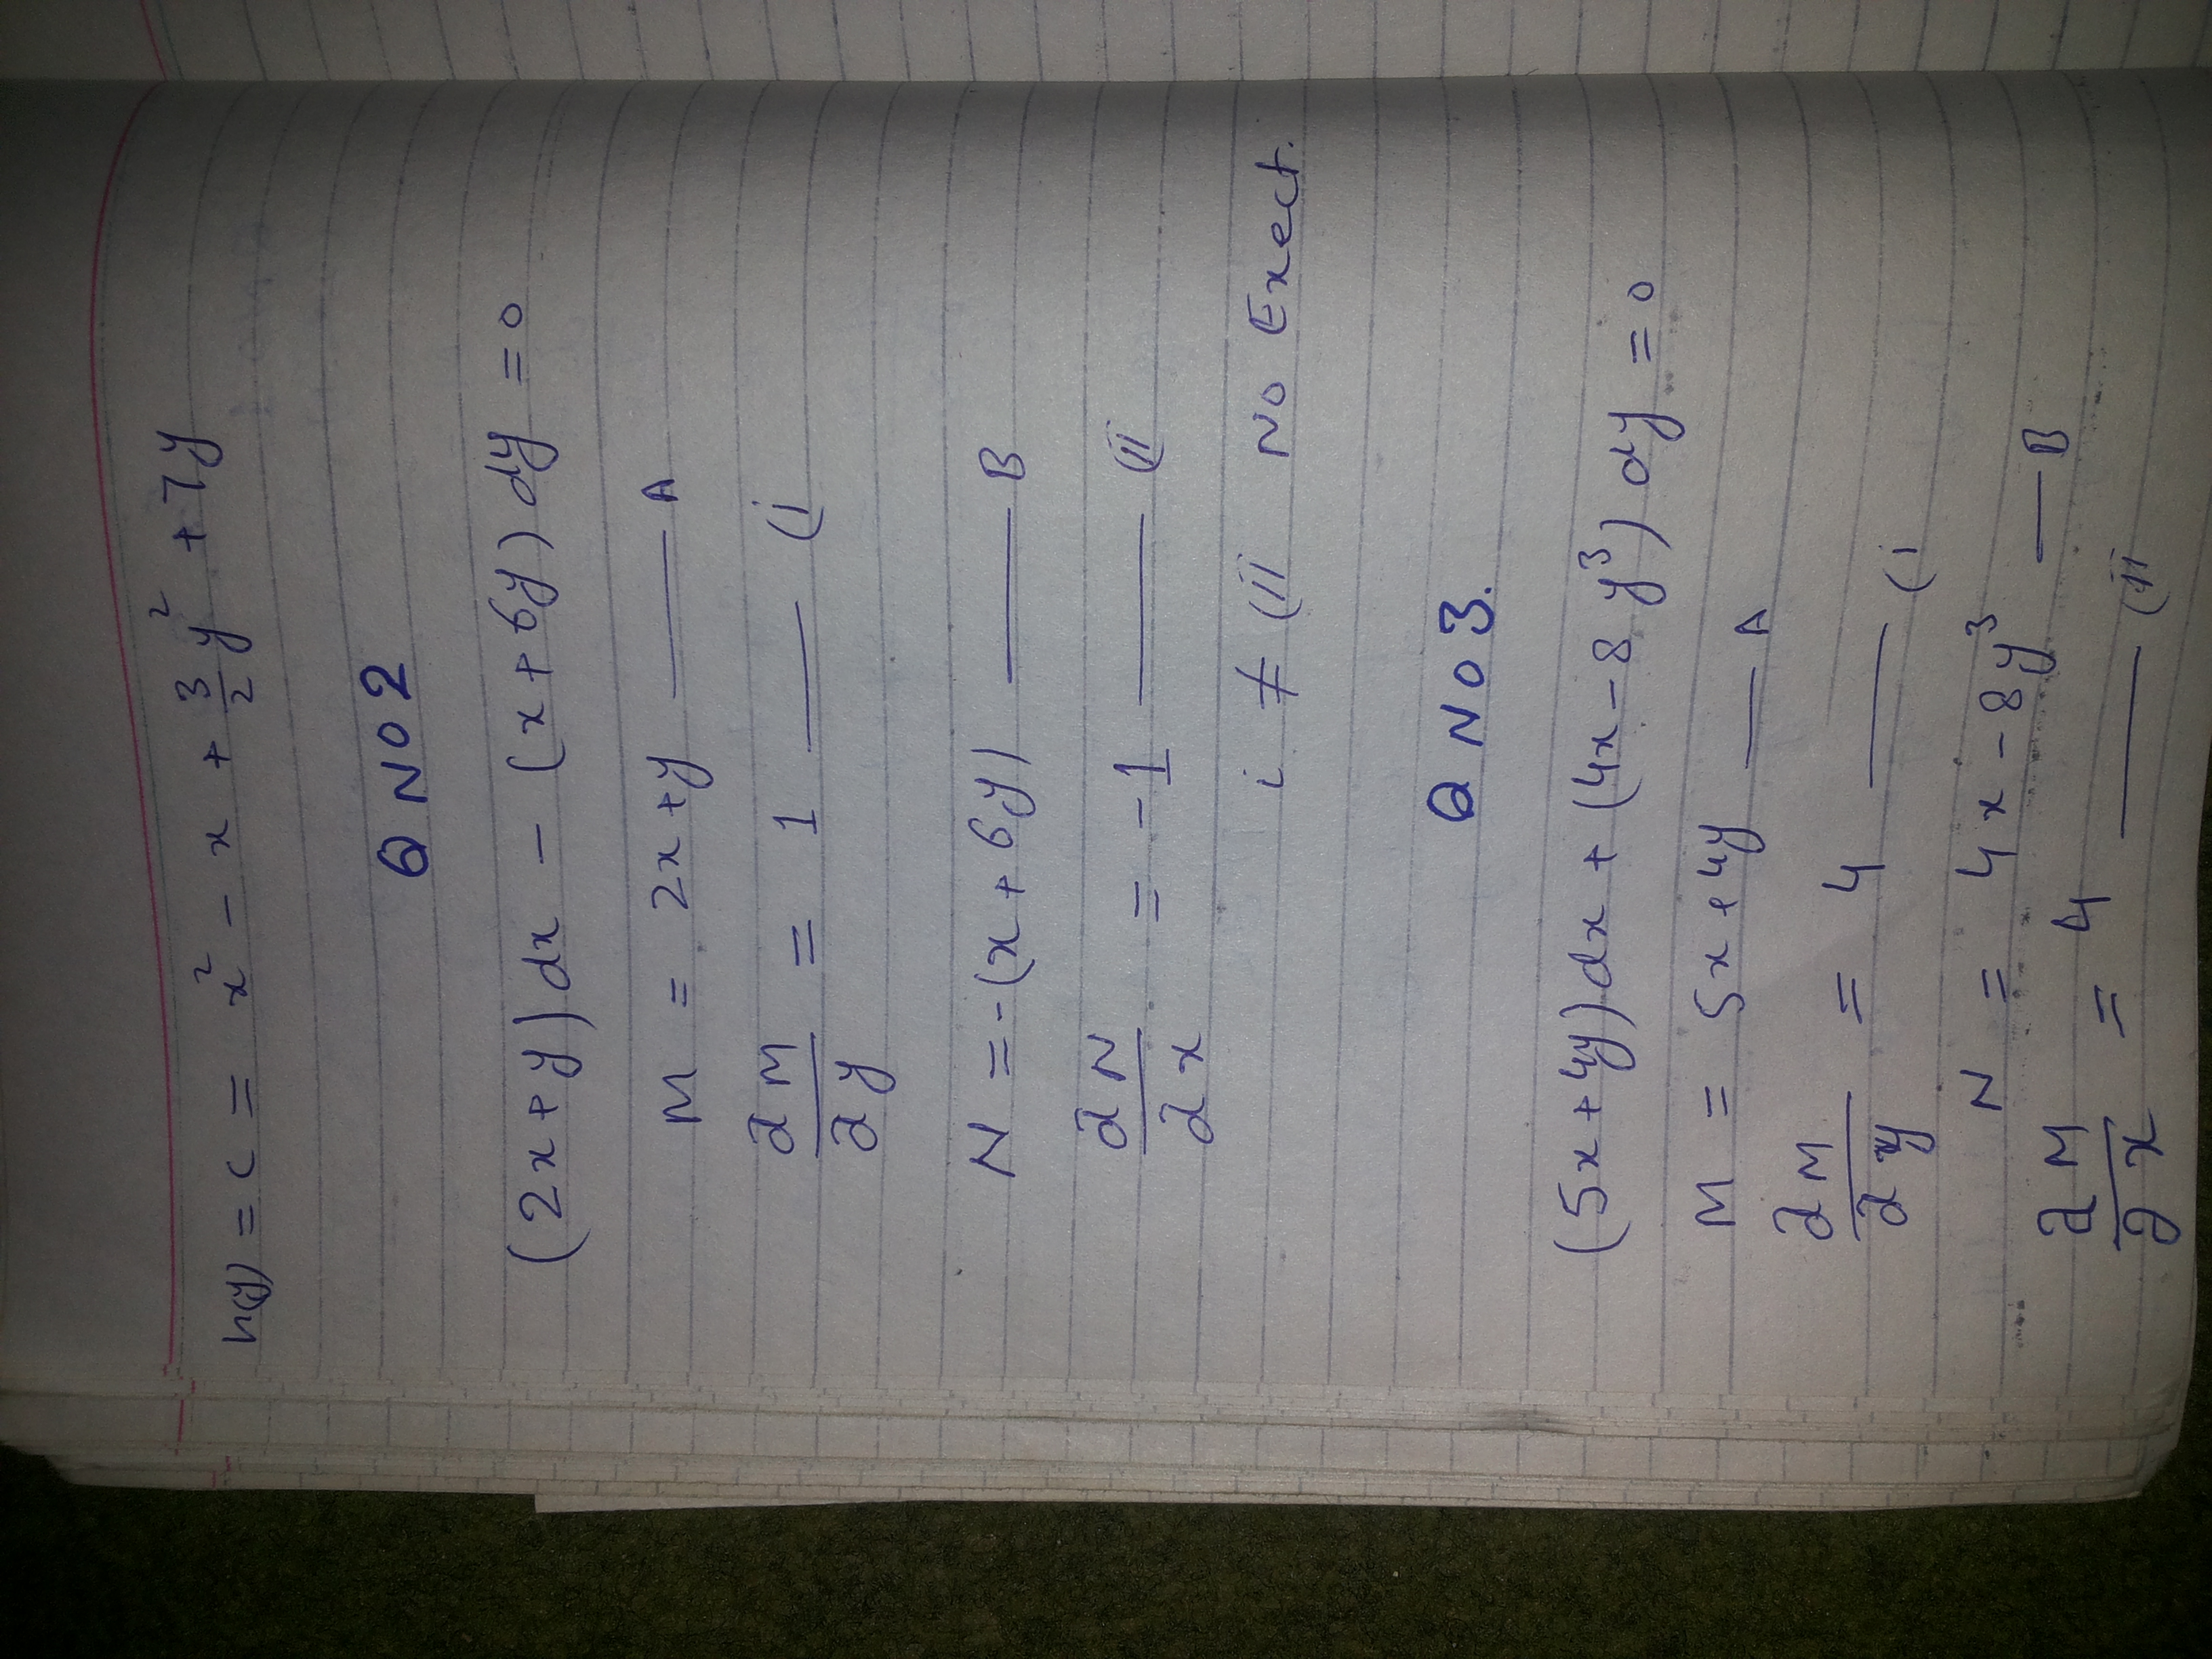 h(y) = c = x² - x + 3/2 y² + 7y
Q NO 2
(2x+y)dx - (x+6y) dy = 0
M = 2x+y —— A
∂M/∂y = 1 —— (i
N = -(x+6y) —— B
∂N/∂x = -1 —— (ii
i ≠ (ii No Exect.
Q NO 3.
(5x+4y)dx + (4x-8y³) dy = 0
M = 5x+4y —— A
∂M/∂y = 4 —— (i
N = 4x-8y³ —— B
∂M/∂x = 4 —— (ii